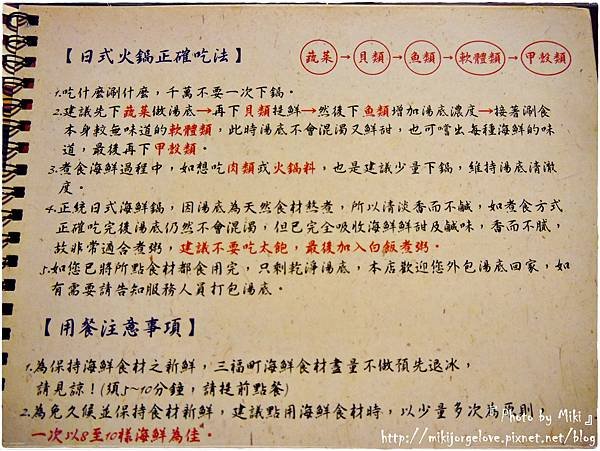 【日式火鍋正確吃法】
蔬菜→貝類→魚類→軟體類→甲殼類
1.吃什麼涮什麼，千萬不要一次下鍋。
2.建議先下蔬菜做湯底→再下貝類提鮮→然後下魚類增加湯底濃度→接著涮食
本身較無味道的軟體類，此時湯底不會混濁又鮮甜，也可嚐出每種海鮮的味
道，最後再下甲殼類。
3.煮食海鮮過程中，如想吃肉類或火鍋料，也是建議少量下鍋，維持湯底清澈
度。
4.正統日式海鮮鍋，因湯底為天然食材熬煮，所以清淡香而不鹹，如煮食方式
正確吃完後湯底仍然不會混濁，但已完全吸收海鮮鮮甜及鹹味，香而不膩，
故非常適合煮粥，建議不要吃太飽，最後加入白飯煮粥。
5.如您已將所點食材都食用完，只剩乾淨湯底，本店歡迎您外包湯底回家，如
有需要請告知服務人員打包湯底。
【用餐注意事項】
1.為保持海鮮食材之新鮮，三福町海鮮食材盡量不做預先退冰，
請見諒！(須5~10分鐘，請提前點餐)
2.為免久候並保持食材新鮮，建議點用海鮮食材時，以少量多次為原則
一次以8至10樣海鮮為佳。
Photo by Miki』
http://mikijorgelove.pixnet.net/blog